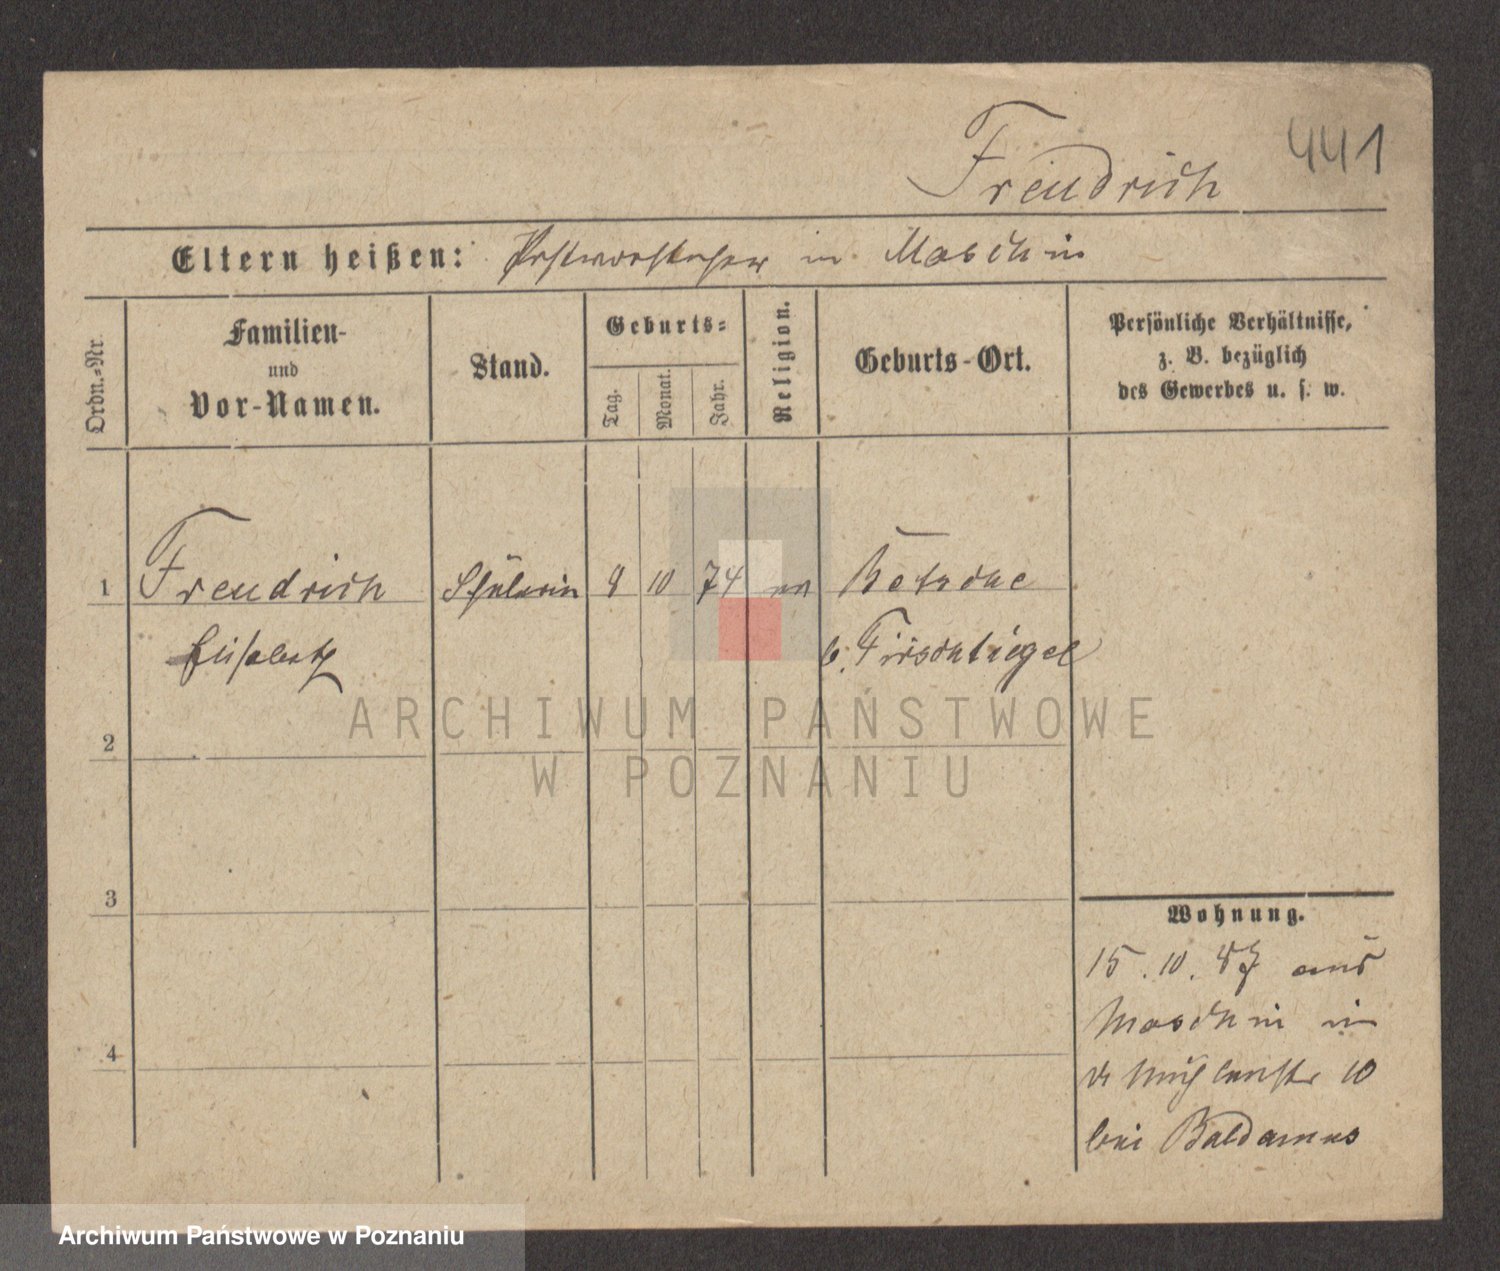 441
Freudrich
Eltern heißen: Postvorsteher in Moschin
Ordn.-Nr
Familien-
und
Vor-Namen.
Stand.
Geburts-
Tag.
Monat.
Jahr.
Religion.
Geburts-Ort.
Persönliche Verhältnisse,
z. B. bezüglich
des Gewerbes u. s. w.
1 Freudrich Schülerin 8 10 74 ev
Elisabeth b. Tirschtiegel
2
3
4
Wohnung.
15. 10. 87 aus
Moschin in
Mühlenstr 10
bei Baldamus
ARCHIWUM PAŃSTWOWE
W POZNANIU
Archiwum Państwowe w Poznaniu